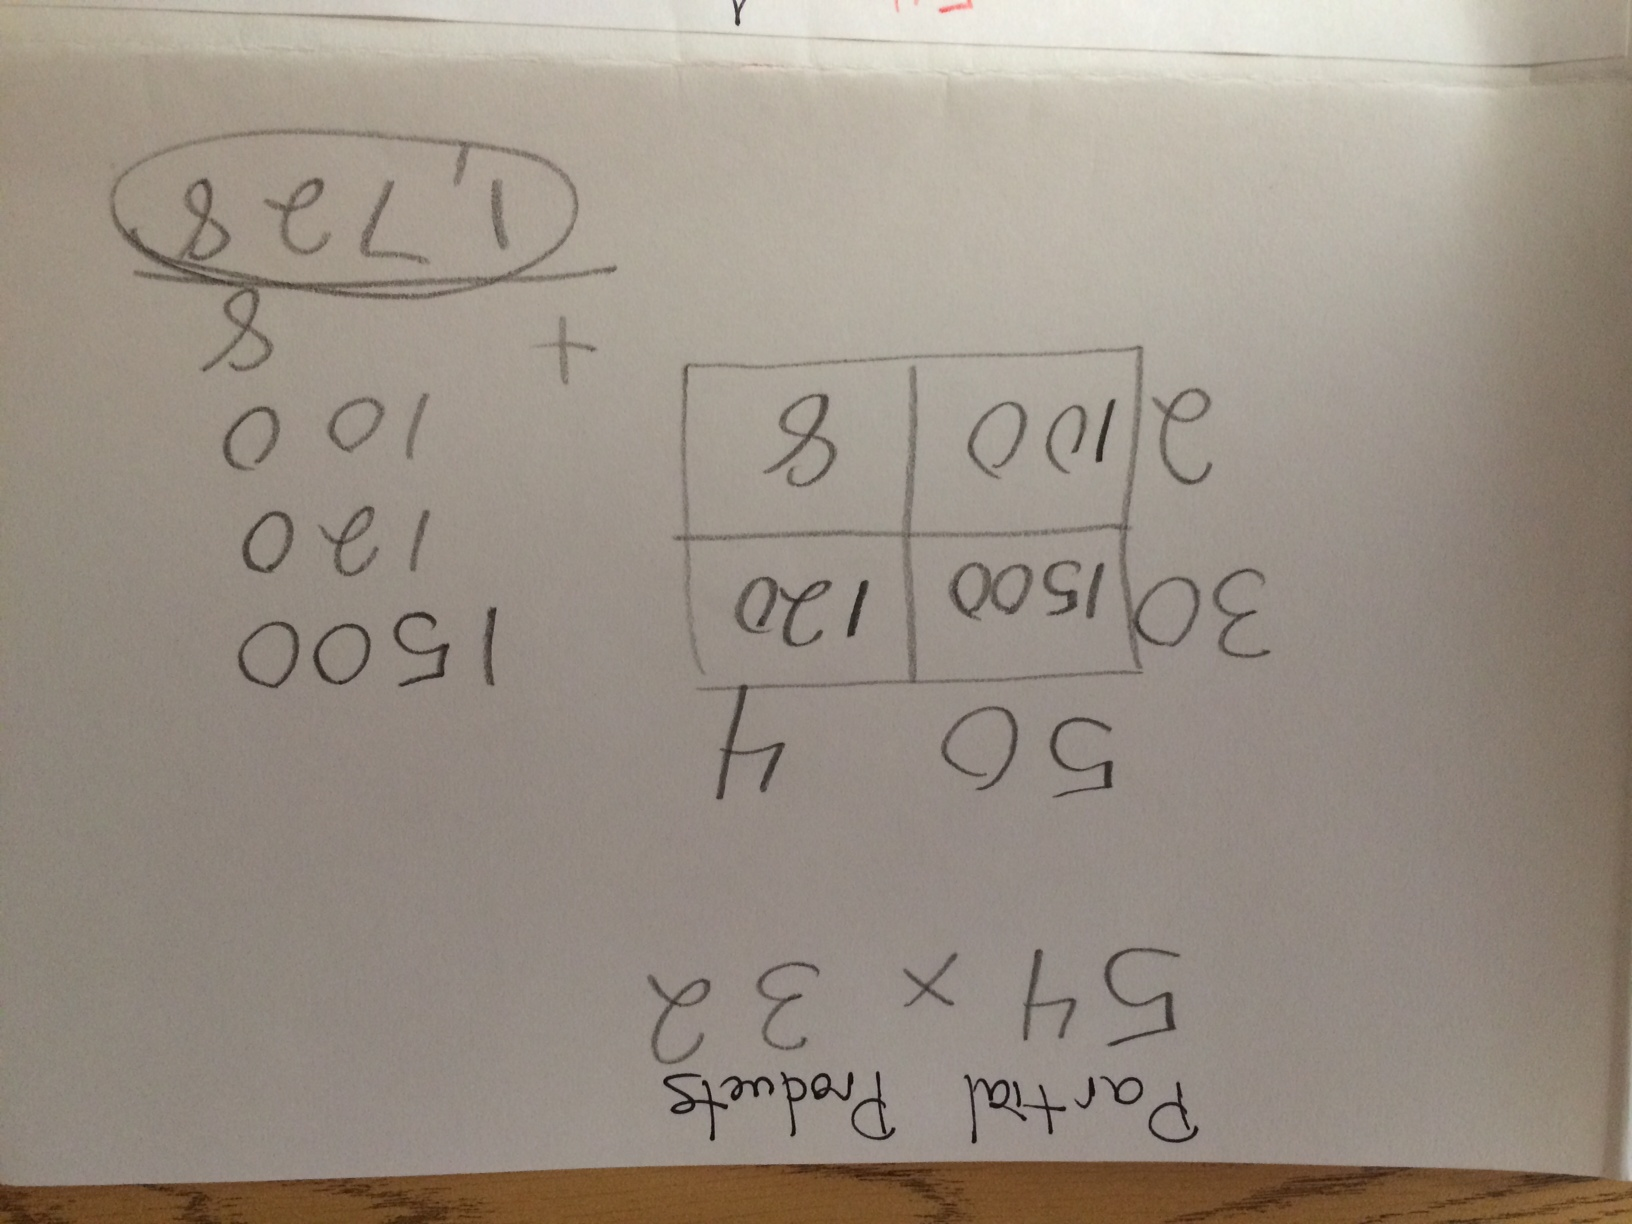 Partial Products
54 × 32
50 4
30 1500 120
2 100 8
1500
120
100
+ 8
1,728